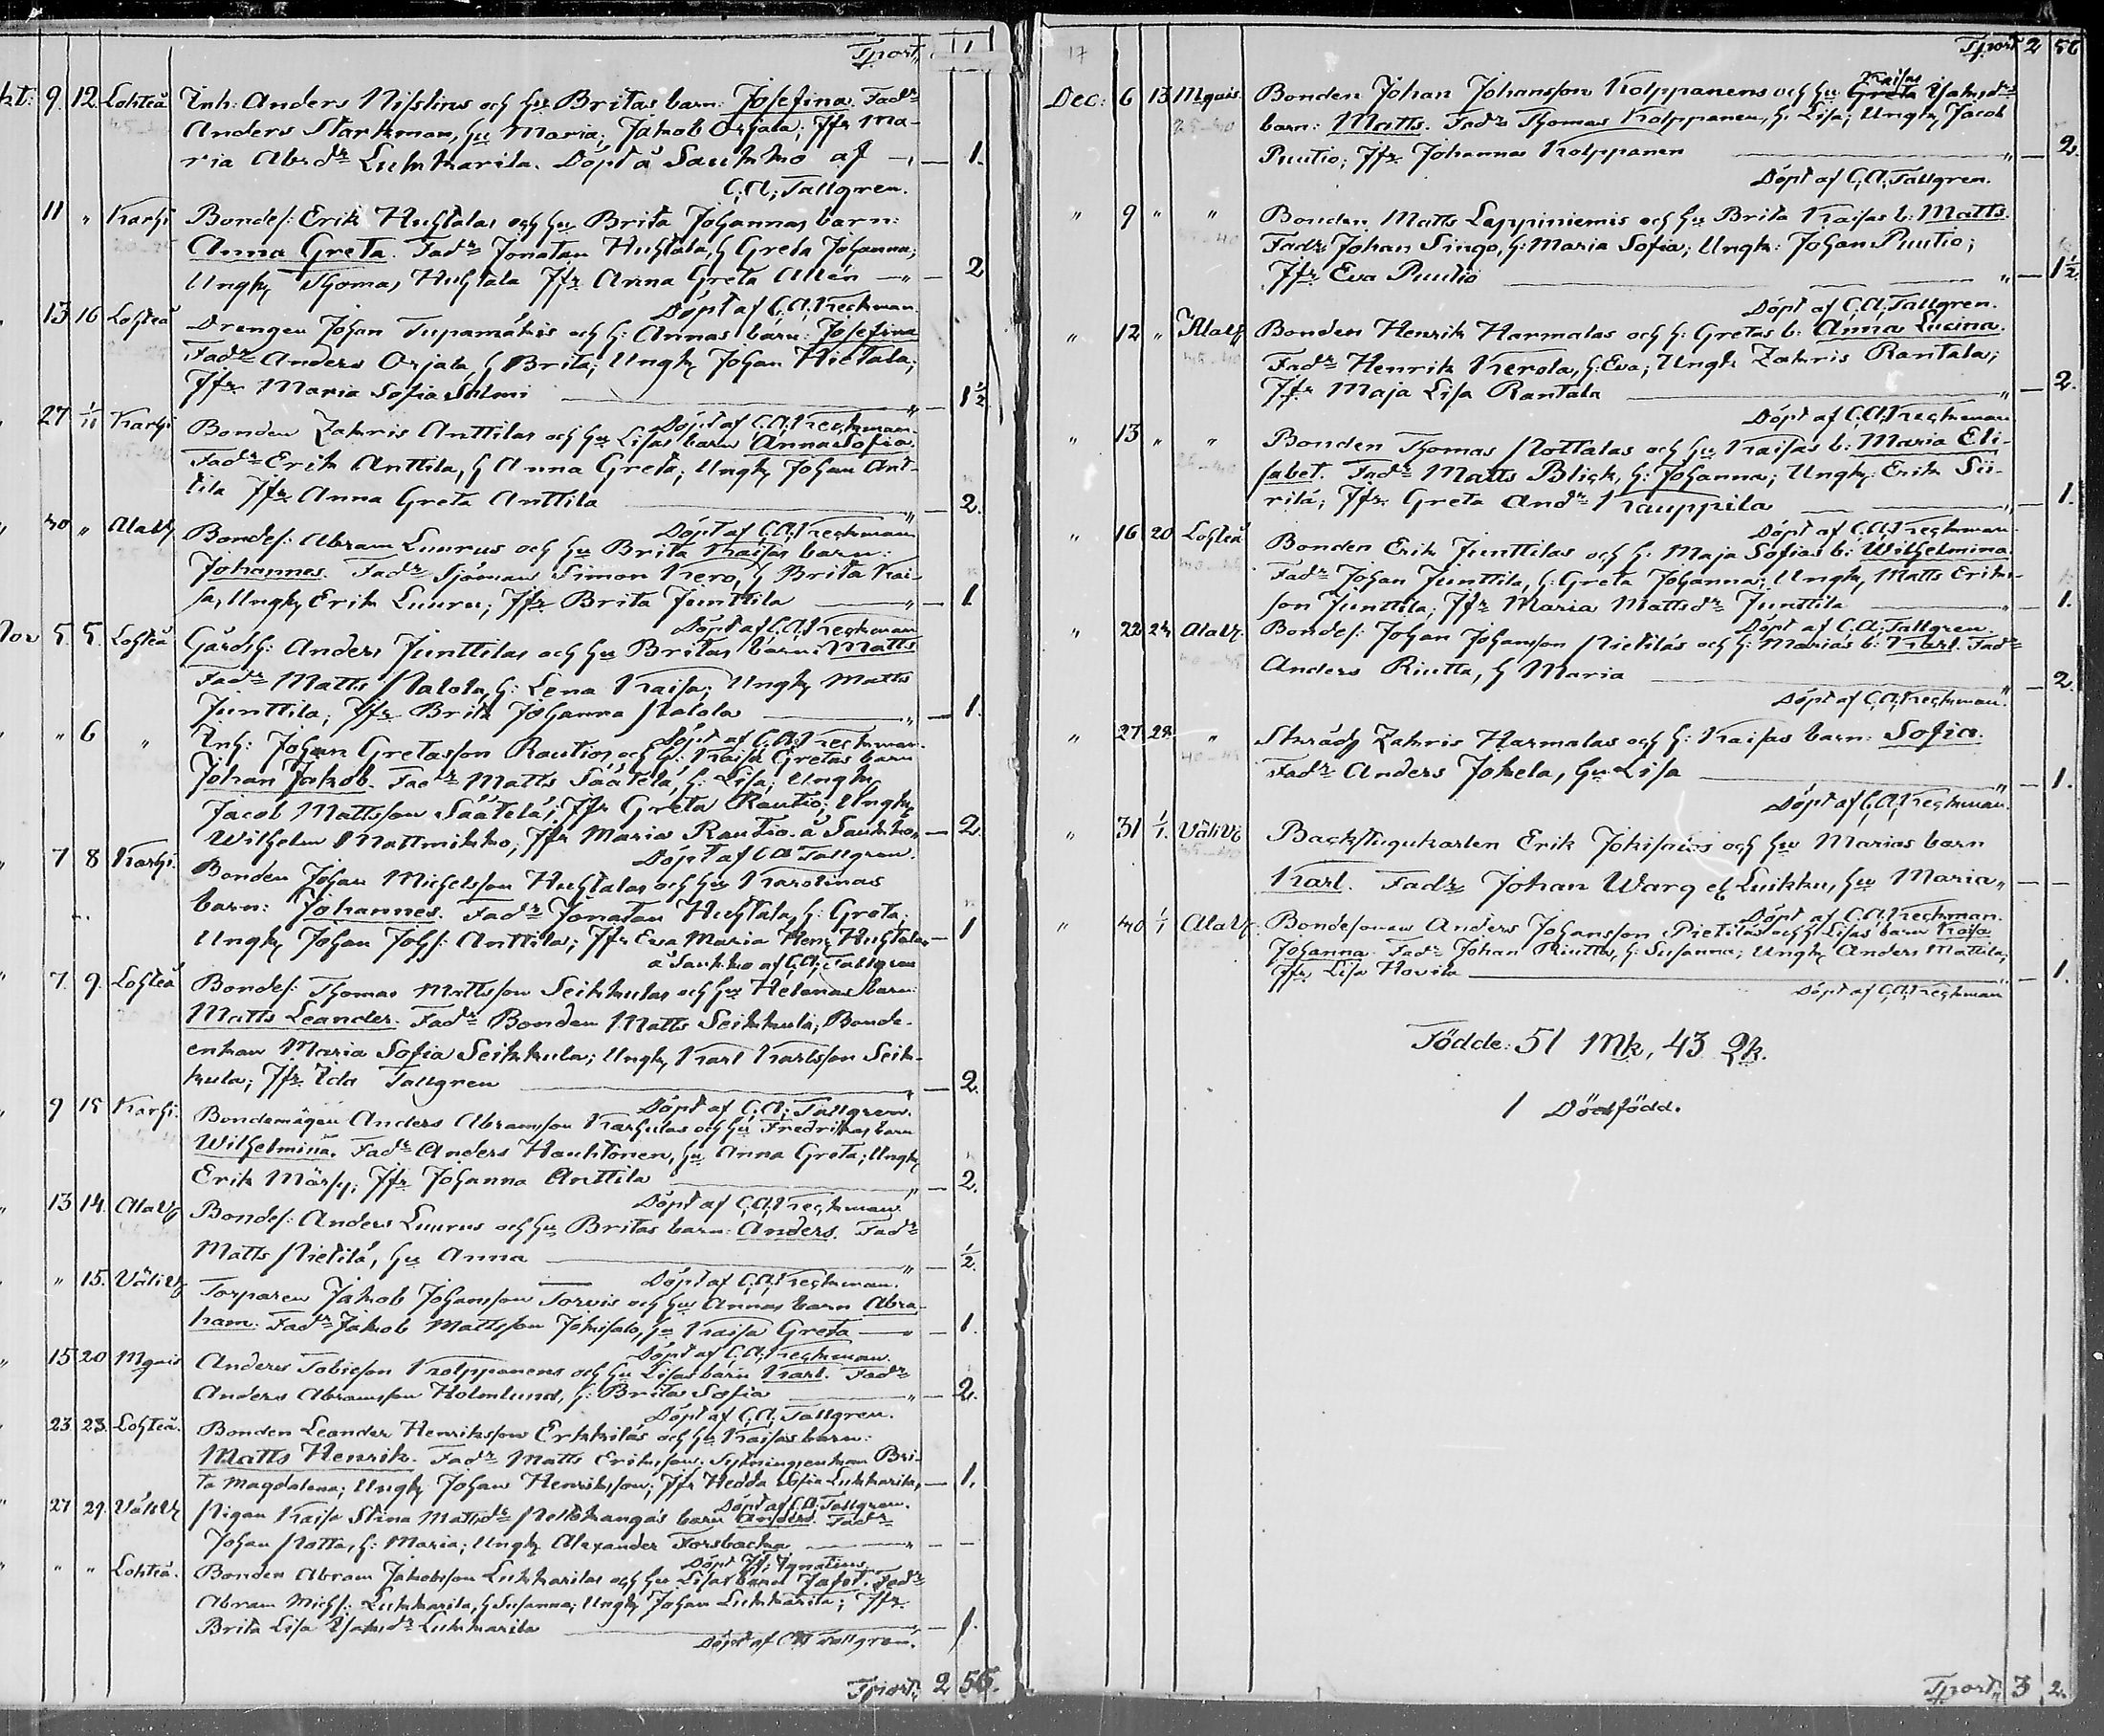 Tport. 1
kt: 9 12 Lohteå Inh: Anders Nisslins och Hu Britas barn: Josefina. Fadr
Anders Starkman, Hu Maria; Jakob Orjala; Jfr Ma-
ria Abr.dr Lukkarila. Döpt å Saukko af — 1.
C.A. Tallgren.
11 " Karhi Bondes: Erik Huhtalas och Hu Brita Johannas barn:
Anna Greta. Fadr Jonatan Huhtala, H Greta Johanna;
Ungk Thomas Huhtala Jfr Anna Greta Allén — " — 2
Döpt af C.A. Keckman.
13 16 Lohteå Drengen Johan Tupamäkis och H: Annas barn: Josefina
Fadr Anders Orjala, H Brita; Ungk Johan Hietala;
Jfr Maria Sofia Salmi " — 1½
Döpt af C.A. Keckman.
27 1/11 Karhi Bonden Zakris Anttilas och Hu Lisas barn Anna Sofia.
Fadr Erik Anttila, H Anna Greta; Ungk Johan Ant-
tila Jfr Anna Greta Anttila " — 2.
Döpt af C.A. Keckman
30 " AlaV Bondes: Abram Luurus och Hu Brita Kaisas barn:
Johannes. Fadr Sjöman Simon Kero, H Brita Kai-
sa, Ungk Erik Luuru; Jfr Brita Junttila " — 1
Döpt af C.A. Keckman
Nov 5. 5. Lohteå Gårdsh: Anders Junttilas och Hu Britas barn: Matts
Fadr Matts Palola, H: Lena Kaisa; Ungk Matts
Junttila; Jfr Brita Johanna Palola " — 1.
Döpt af C.A. Keckman.
" 6 " Inh: Johan Gretasson Rautios och H: Kaisa Gretas barn
Johan Jakob. Fadr Matts Säätelä, H: Lisa; Ungk
Jacob Mattsson Säätelä; Jfr Greta Rautio; Ungk
Wilhelm Mattmikko, Jfr Maria Rautio. å Saukko, — 2.
Döpt af C A Tallgren.
7 8 Karhi. Bonden Johan Michelsson Huhtalas och Hu Karolinas
barn: Johannes. Fadr Jonatan Huhtala, H: Greta;
Ungk Johan Johs: Anttila; Jfr Eva Maria Henr Huhtala — 1
å Saukko af C.A. Tallgren
7. 9. Lohteå Bondes: Thomas Mattsson Seikkulas och Hu Helenas barn:
Matts Leander. Fadr Bonden Matts Seikkula; Bonde-
enkan Maria Sofia Seikkula; Ungk Karl Karlsson Seik-
kula; Jfr Ida Tallgren " — 2.
Döpt af C.A. Tallgren.
9 15 Karhi. Bondemågen Anders Abramsson Karhulas och Hu Fredrikas barn
Wilhelmina. Fadr Anders Hauhtonen, Hu Anna Greta; Ungk
Erik Märsy; Jfr Johanna Anttila " — 2.
Döpt af C.A. Keckman.
13 14. AlaV Bondes: Anders Luurus och Hu Britas barn: Anders. Fadr
Matts Pietilä, Hu Anna " — ½
Döpt af C.A. Keckman.
" 15. VäliV Torparen Jakob Johansson Torvis och Hu Annas barn Abra-
ham. Fadr Jakob Mattsson Jokisalo, Hu Kaisa Greta — " — 1.
Döpt af C.A. Keckman.
15 20 Mquis Anders Tobiesson Kolppanens och Hu Lisas barn Karl. Fadr
Anders Abramsson Holmlund, H: Brita Sofia " — 2.
Döpt af C.A. Tallgren.
23 23. Lohteå. Bonden Leander Henriksson Erkkiläs och Hu Kaisas barn:
Matts Henrik. Fadr Matts Eriksson. Sytningsenkan Bri-
ta Magdalena; Ungk Johan Henriksson; Jfr Hedda Sofia Lukkarila, — 1.
Döpt af C.A. Tallgren.
27 29. VäliV Pigan Kaisa Stina Mattsdr barn Anders. Fadr
Johan Potta, H: Maria; Ungk Alexander Forsbacka " — —
Döpt Ignatius.
" " Lohteå. Bonden Abram Jakobsson Lukkarilas och Hu Lisas barn Jafet. Fadr
Abram Michs: Lukkarila, H Susanna; Ungk Johan Lukkarila; Jfr
Brita Lisa Isaksdr Lukkarila " — 1.
Döpt af C A Tallgren.
Tport. 2 56.
17
Tport 2 56
Dec: 6 13 Mquis. Bonden Johan Johansson Kolppanens och Hu Kaisas Greta Isaksdrs
barn: Matts. Fadr Thomas Kolppanen, H. Lisa; Ungk Jacob
Puutio; Jfr Johannas Kolppanen " — 2.
Döpt af C.A. Tallgren.
" 9 " " Bonden Matts Lappiniemis och Hu Brita Kaisas b: Matts.
Fadr Johan Singo, H: Maria Sofia; Ungk: Johan Puutio;
Jfr Eva Puutio " — 1½
Döpt af C.A. Tallgren.
" 12 " AlaV Bonden Henrik Harmalas och H: Gretas b: Anna Lucina.
Fadr Henrik Kerola, H: Eva; Ungk Zakris Rantala;
Jfr Maja Lisa Rantala " — 2.
Döpt af C.A. Keckman
" 13 " " Bonden Thomas Pottalas och Hu Kaisas b: Maria Eli-
sabet. Fadr Matts Blick, H: Johanna; Ungk: Erik Sii-
rilä; Jfr Greta Andr Kauppila " — 1.
Döpt af C.A. Keckman.
" 16 20 Lohteå Bonden Erik Junttilas och H: Maja Sofias b: Wilhelmina
Fadr Johan Junttila, H: Greta Johanna; Ungk Matts Eriks-
son Junttila; Jfr Maria Mattsdr Junttila " — 1.
Döpt af C.A. Tallgren.
" 22 24 AlaV. Bondes: Johan Johansson Pietiläs och H: Marias b: Karl. Fadr
Anders Riutta, H Maria " — 2.
Döpt af C.A. Keckman.
" 27 28 " Skräd Zakris Harmalas och H: Kaisas barn: Sofia.
Fadr Anders Jokela, Hu Lisa " — 1.
Döpt af C.A. Keckman.
" 31 1/1. VäliV Backstugukarlen Erik Jokisalos och Hu Marias barn
Karl. Fadr Johan Warg el Luikku, Hu Maria " — —
Döpt af C.A. Keckman.
" 30 1/1 AlaV. Bondesonen Anders Johansson Pietiläs och H Lisas barn Kaisa
Johanna. Fadr Johan Riutta, H: Susanna; Ungk Anders Mattila;
Jfr Lisa Hovila " — 1.
Döpt af C.A. Keckman
Födde: 51 Mk, 43 Qk.
1 Dödfödd.
Tport. 3 2.